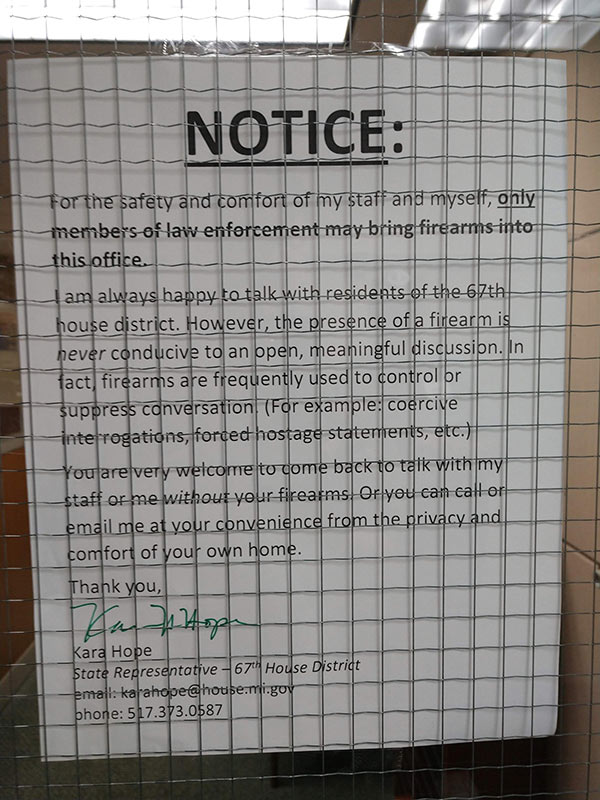 NOTICE:
For the safety and comfort of my staff and myself, only
members of law enforcement may bring firearms into
this office.
I am always happy to talk with residents of the 67th
house district. However, the presence of a firearm is
never conducive to an open, meaningful discussion. In
fact, firearms are frequently used to control or
suppress conversation. (For example: coercive
interrogations, forced hostage statements, etc.)
You are very welcome to come back to talk with my
staff or me without your firearms. Or you can call or
email me at your convenience from the privacy and
comfort of your own home.
Thank you,
Kara Hope
Kara Hope
State Representative – 67th House District
email: karahope@house.mi.gov
phone: 517.373.0587